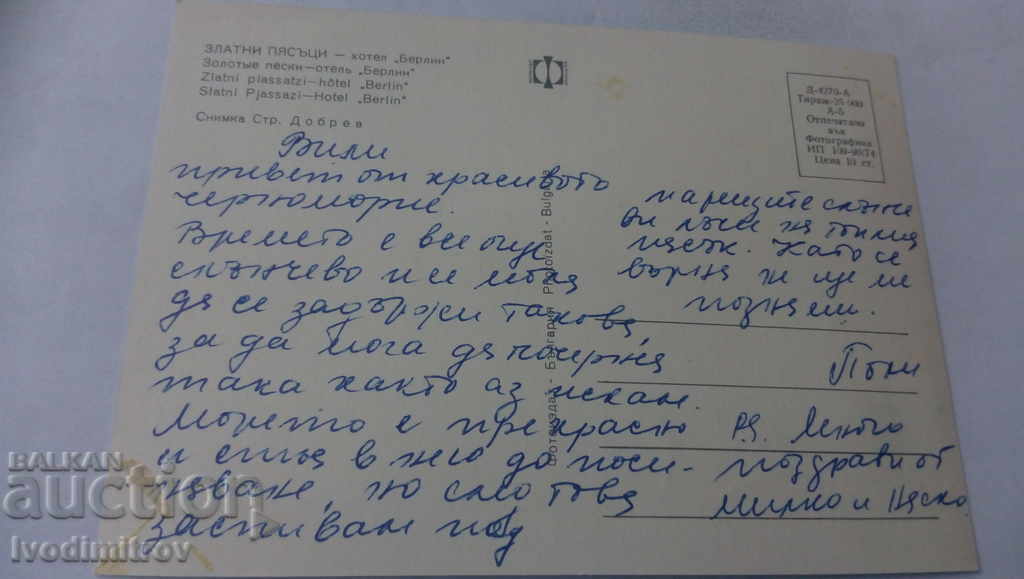 ЗЛАТНИ ПЯСЪЦИ — хотел „Берлин"
Золотые пески—отель „Берлин"
Zlatni piassatzi—hôtel „Berlin"
Slatni Pjassazi—Hotel „Berlin"
Снимка Стр. Добрев
Д-4270-А
Тираж 25 000
А-6
Отпечатано
във
Фотографика
ИП
Цена 10 ст.
Фотоиздат - България Photoizdat - Bulgaria
Вили
привет от красивото
черноморие.
Времето е все още
слънчево и се моля
да се задържи такова,
за да мога да почернея
така както аз искам.
Морето е прекрасно
и стоя в него до поси-
няване, но след това
заспивам под
горещите слънчеви
на топлия
пясък. Като се
върна
познаем.
Пъни
P.S. Много
поздрави от
Мирко и Цеско.
BALKAN
auction
Ivodimitrov